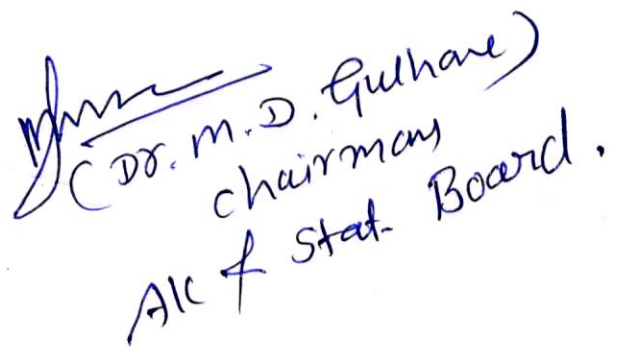 (Dr. M. D. Gulhane)
Chairman
A/c & Stat. Board.